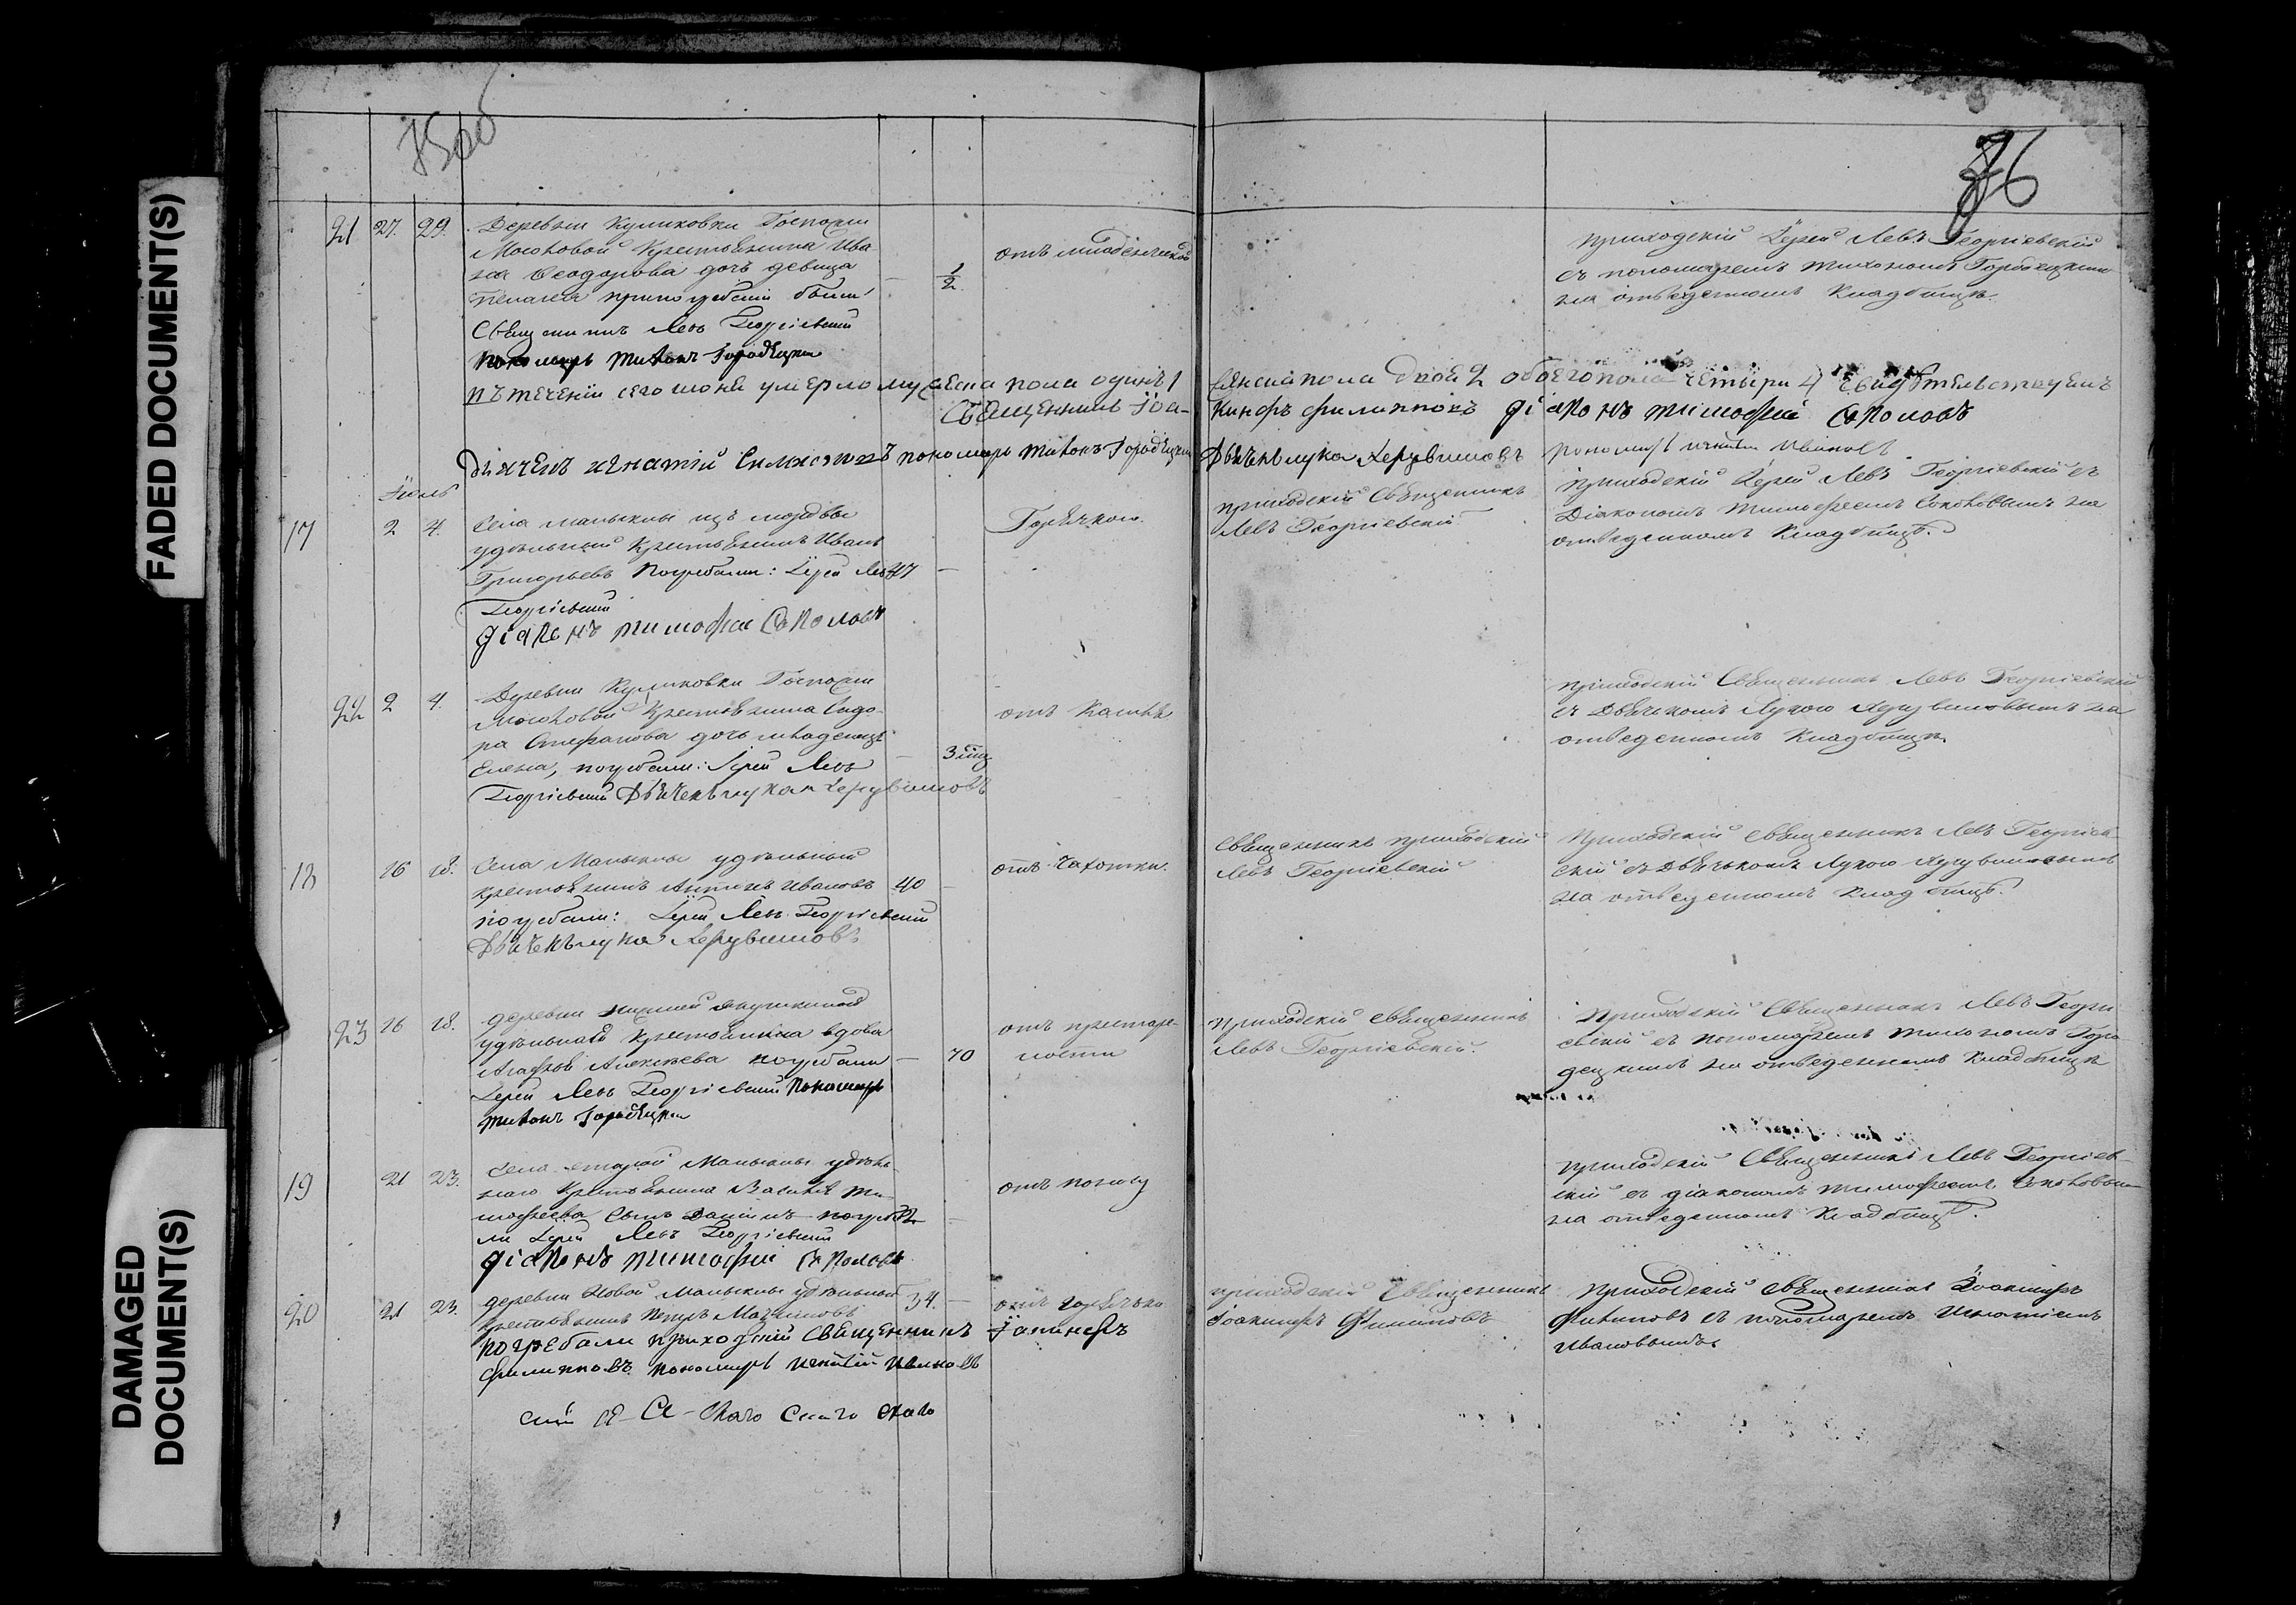 FADED DOCUMENT(S)
DAMAGED
DOCUMENT(S)
75об
76
21 27. 29. Деревни Куликовки Госпожи
Мосоловой Крестьянина Ива
на Феодорова дочь девица
Пелагея
Священникъ Левъ Георгіевскій
Пономарь Тихонъ Городецкій
1/2
отъ младенческой
приходскій Іерей Левъ Георгіевскій
съ пономаремъ Тихономъ Городецкимъ
на отведенномъ кладбищѣ.
въ теченіи сего июня умерло мужеска пола одинъ 1 женска пола двое 2 обоего пола четыри 4 свидѣтельствуемъ
Священникъ Іоакинфъ Филипповъ діаконъ Тимофей Соколовъ
пономарь Тихонъ Городецкій Дьячекъ Лука Херувимовъ пономарь Игнатій Ивановъ
Іюль
17 2 4. Села Малыклы изъ мордвы
удѣльный Крестьянинъ Иванъ
Григорьевъ Погребали: Іерей Левъ 47 —
Георгіевскій
діаконъ Тимофей Соколовъ
Горячкою.
приходскій Священникъ
Левъ Георгіевскій
приходскій Іерей Левъ Георгіевскій съ
Діакономъ Тимофеемъ Соколовымъ на
отведенномъ кладбищѣ.
22 2 4. Деревни Куликовки Госпожи
Мосоловой Крестьянина Сидо
ра Стефанова дочь младенецъ
Елена, погребали: Іерей Левъ — 3
Георгіевскій Дьячекъ Лука Херувимовъ
отъ кашля
приходскій Священникъ Левъ Георгіевскій
съ Дьячкомъ Лукою Херувимовымъ на
отведенномъ кладбищѣ.
18 16 18. Села Малыклы удѣльный
крестьянинъ Антонъ Ивановъ 40 —
погребали: Іерей Левъ Георгіевскій
Дьячекъ Лука Херувимовъ
отъ чахотки.
Священникъ приходскій
Левъ Георгіевскій
Приходскій Священникъ Левъ Георгіев
скій съ Дьячькомъ Лукою Херувимовымъ
на отведенномъ кладбищѣ.
23 16 18. деревни нижней Якушкиной
удѣльнаго Крестьянина вдова
Агафья Алексѣева погребали — 70
Іерей Левъ Георгіевскій Пономарь
Тихонъ Городецкій
отъ престаре-
лости
приходскій священникъ
Левъ Георгіевскій.
Приходскій Священникъ Левъ Георгі
евскій съ пономаремъ Тихономъ Горо
децкимъ на отведенномъ кладбищѣ
19 21 23. Села старой Малыклы удѣль-
наго Крестьянина Василья Ти-
мофеева сынъ Даніилъ погреба —
ли Іерей Левъ Георгіевскій
діаконъ Тимофей Соколовъ
отъ поносу
приходскій Священникъ Левъ Георгіев-
скій съ діакономъ Тимофеемъ Соколовымъ
на отведенномъ кладбищѣ.
20 21 23. деревни Новой Малыклы удѣльный 34. —
Крестьянинъ Петръ
погребали приходскій Священникъ Іакинфъ
Филипповъ пономарь Игнатій Ивановъ
отъ горячки
приходскій Священникъ
Іоакинфъ Филиповъ
Приходскій священникъ Іоакинфъ
Филиповъ съ пономаремъ Игнатіемъ
Ивановымъ.